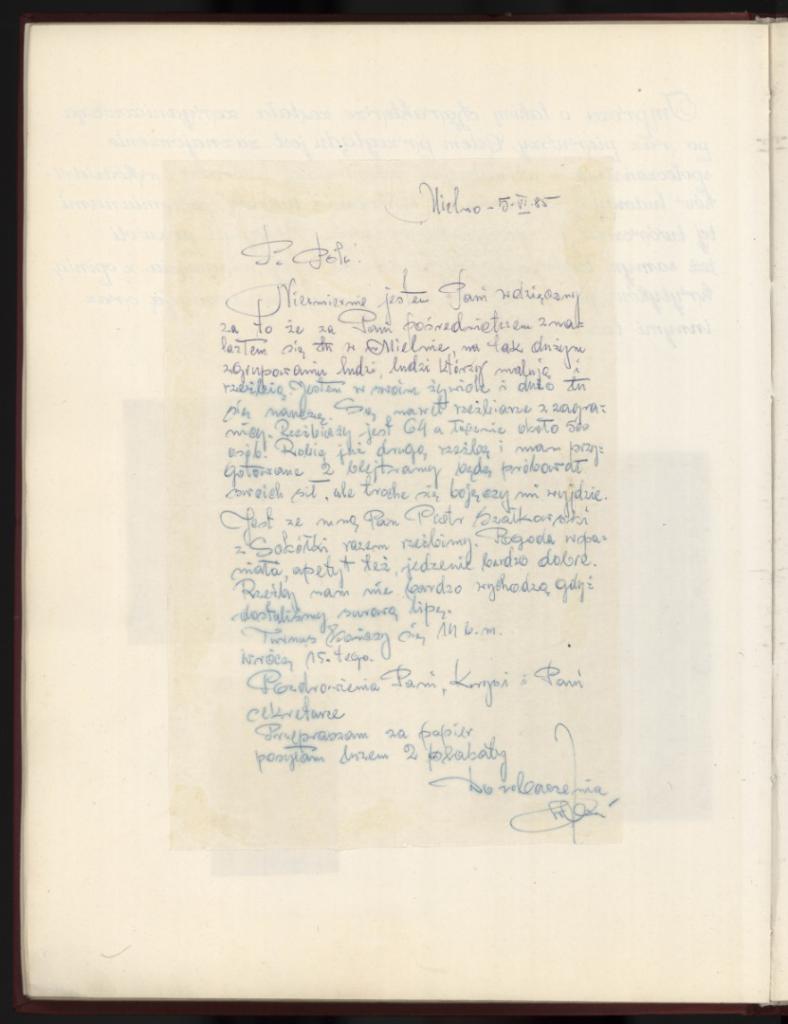 Mielno - 5.VI.85
P. Polu!
Niezmiernie jestem Pani wdzięczny
za to że za Pani pośrednictwem zna-
lazłem się tu w Mielnie, na tak dużym
zgrupowaniu ludzi, ludzi którzy malują i
rzeźbią. Jestem w swoim żywiole i dużo tu
się nauczę. Są nawet rzeźbiarze z zagra-
nicy. Rzeźbiarzy jest 64 a łącznie około 500
osób. Robię już drugą rzeźbę i mam przy-
gotowane 2 blejtramy będę próbował
swoich sił, ale trochę się boję czy mi wyjdzie.
Jest ze mną Pan Piotr Szałkowski
z Sokółki razem rzeźbimy. Pogoda wspa-
niała, apetyt też, jedzenie bardzo dobre.
Rzeźby nam nie bardzo wychodzą gdyż
dostaliśmy surową lipę.
Turnus kończy się 14 b.m.
wrócę 15.tego.
Pozdrowienia Pani, i Pani
cekretarce
Przepraszam za papier
posyłam luzem 2
Do zobaczenia